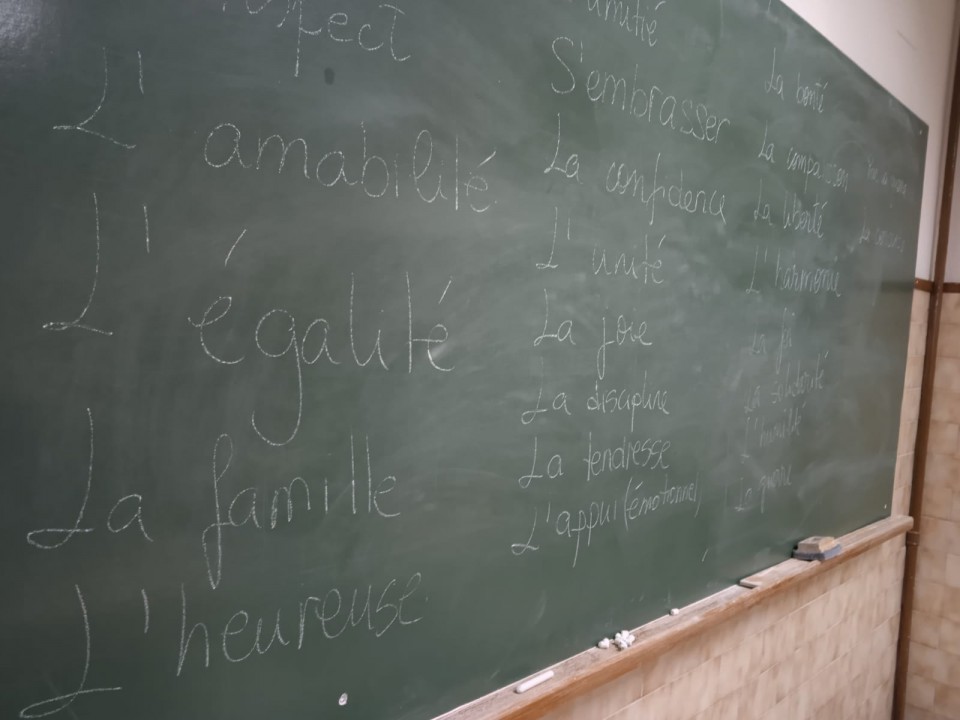 L'amabilité
L'égalité
La famille
L'heureuse
S'embrasser
La confidence
L'unité
La joie
La discipline
La tendresse
L'appui (émotionnel)
La bonté
La compassion
La liberté
L'harmonie
La foi
La solidarité
L'humilité